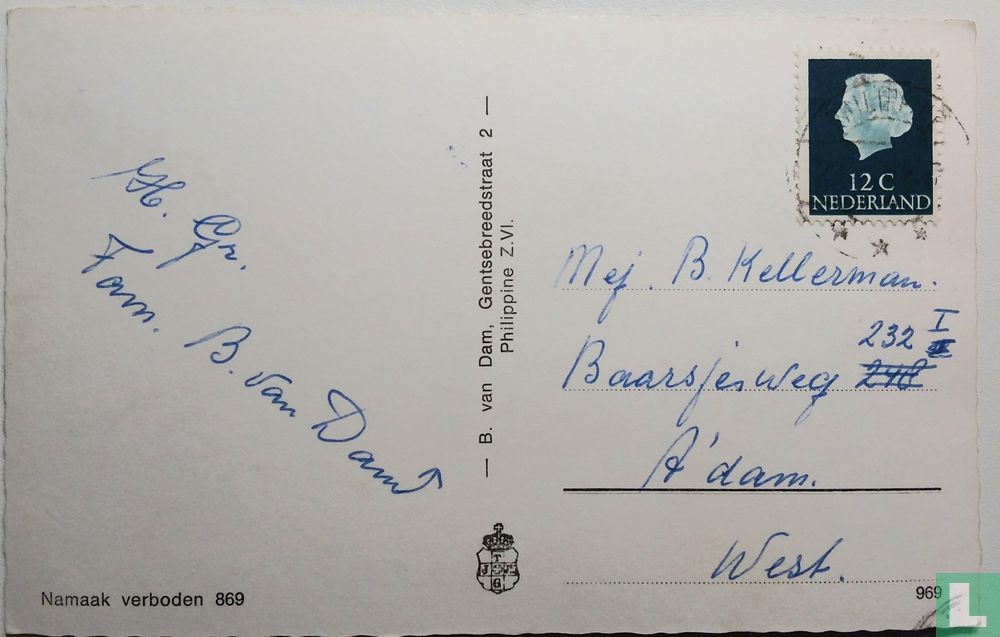 H. Gr.
Fam. B. van Dam
— B. van Dam, Gentsebreedstraat 2 —
Philippine Z.Vl.
12 C
NEDERLAND
Mej. B. Kellerman.
232 I
Baarsjesweg 248
A'dam.
West.
Namaak verboden 869
969
L